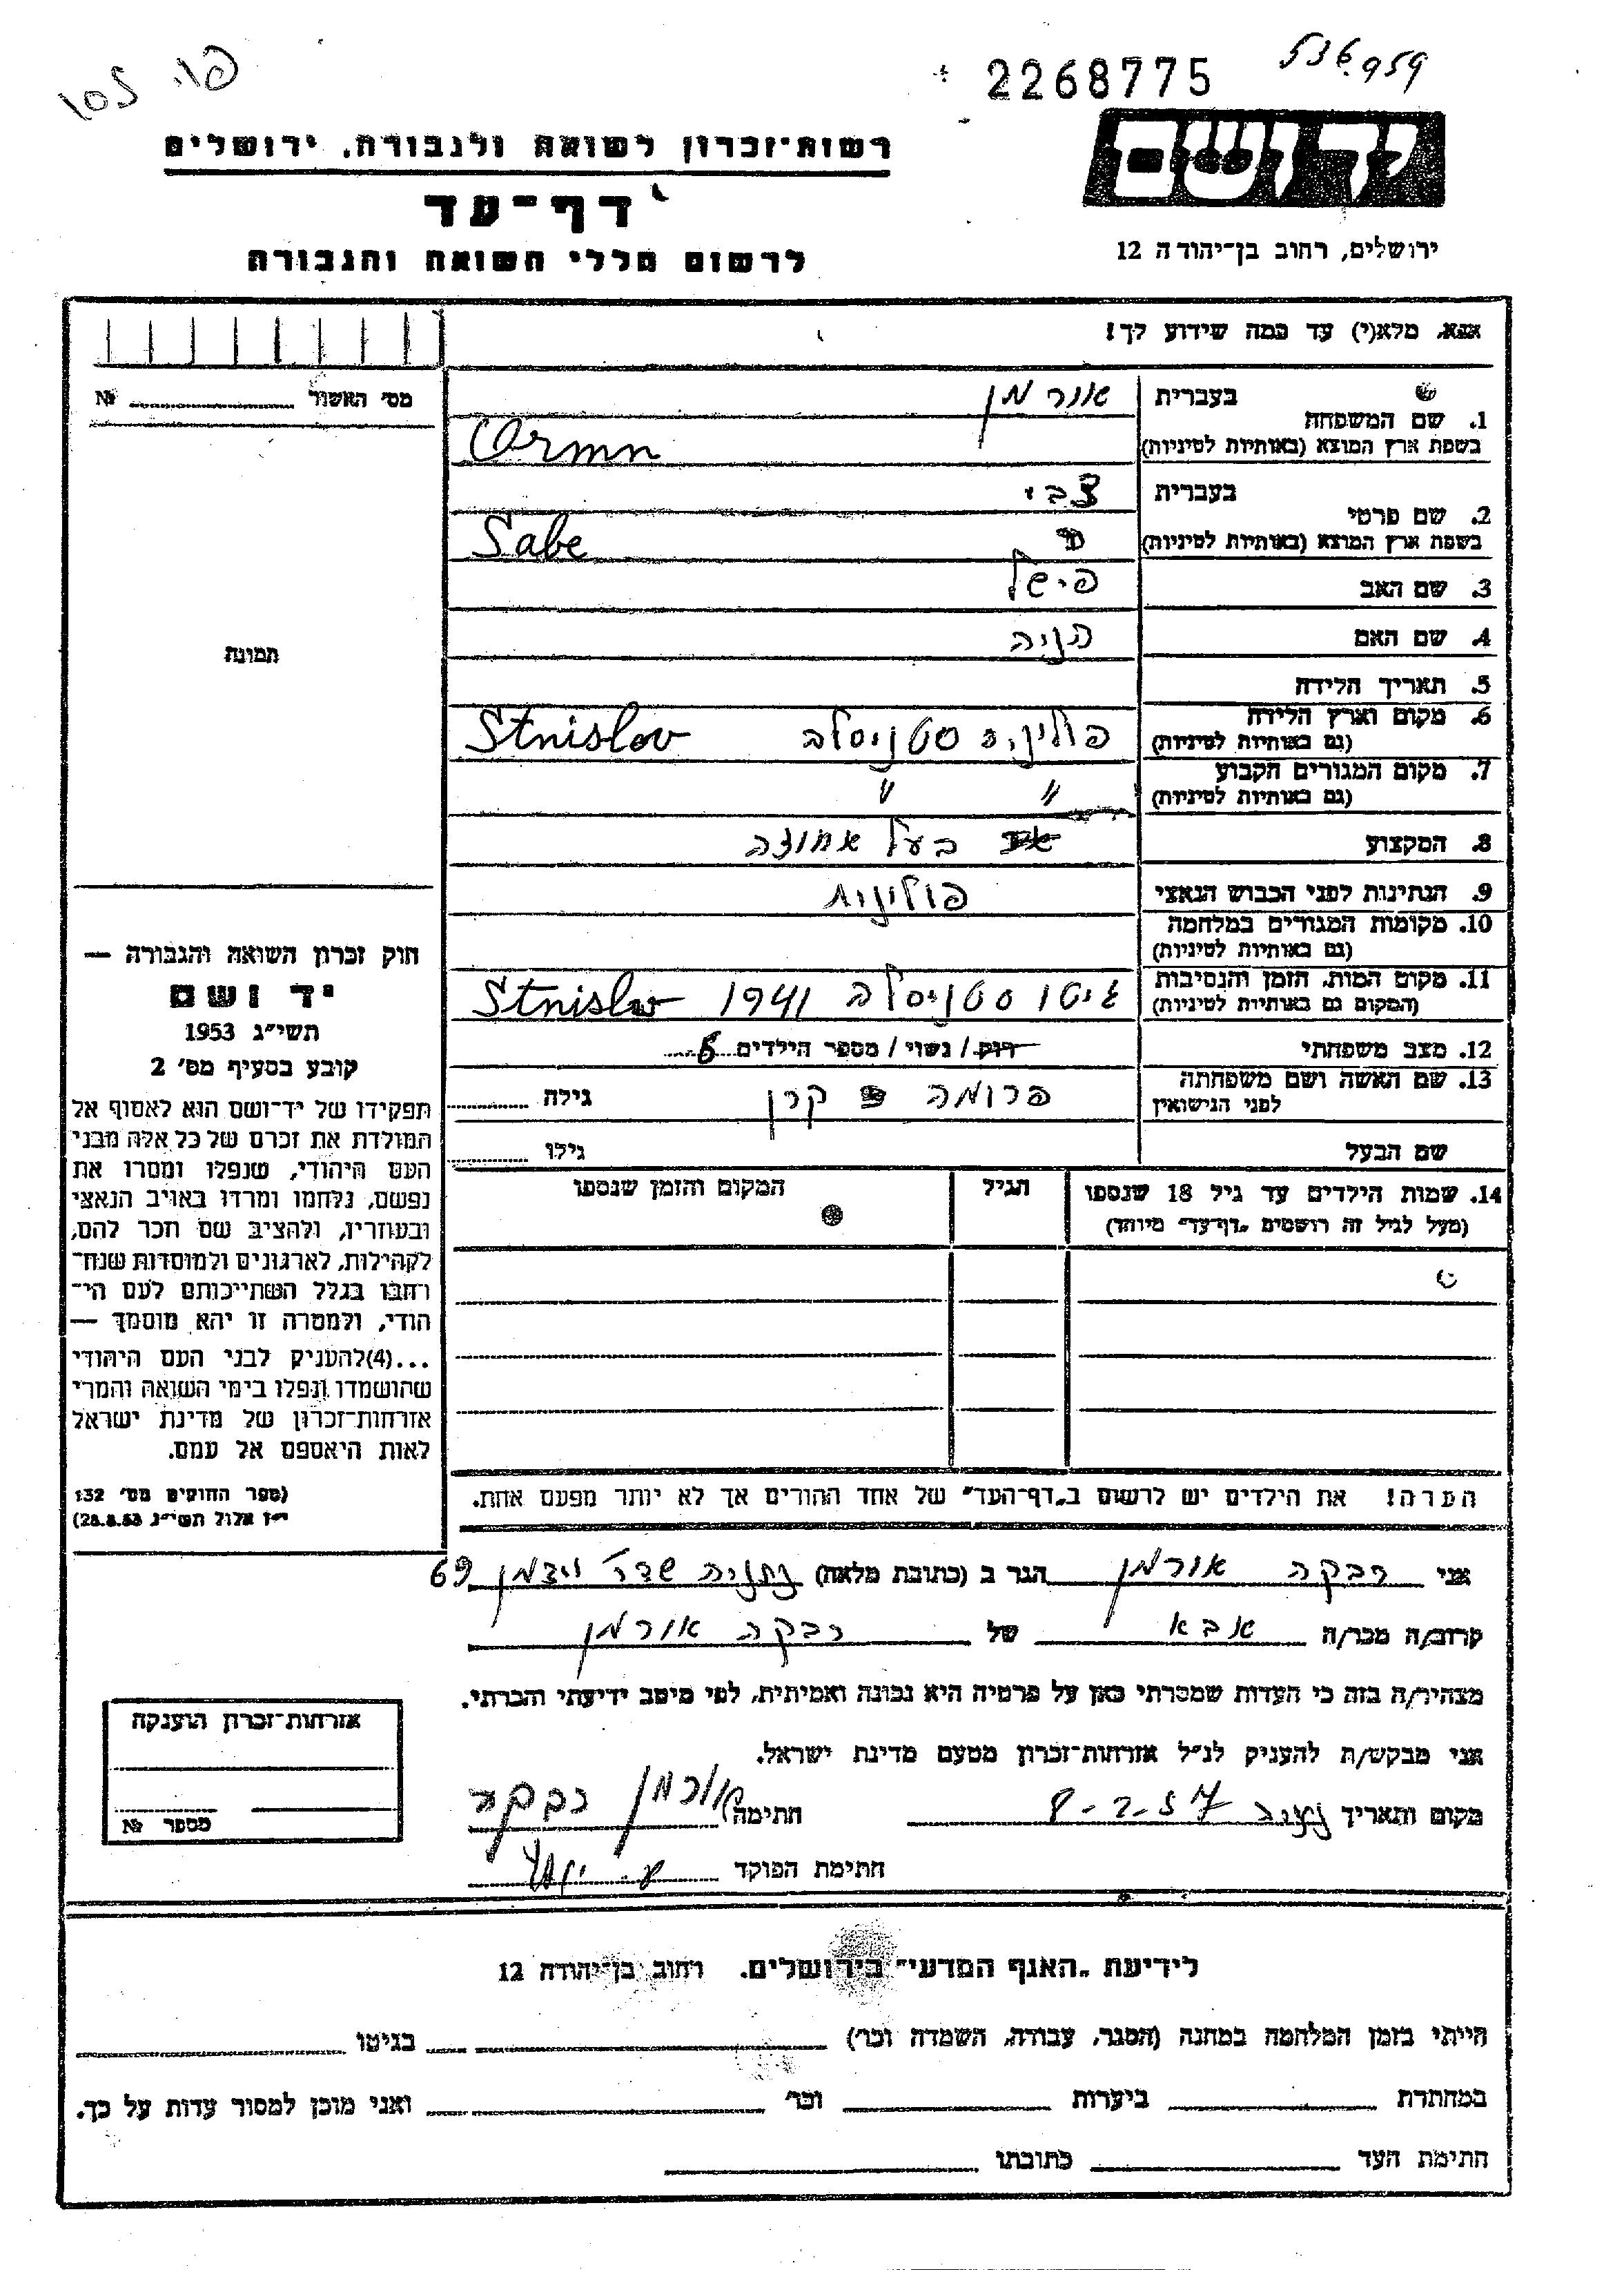 פו. 105
2268775
536.959
יד ושם
רשות-זכרון לשואה ולגבורה, ירושלים
דף-עד
לרשום חללי השואה והגבורה
ירושלים, רחוב בן-יהודה 12
אנא, מלא(י) עד כמה שידוע לך!
מס' האשור № 
1. שם המשפחה בעברית אורמן
בשפת ארץ המוצא (באותיות לטיניות) Ormn
2. שם פרטי בעברית צבי
בשפת ארץ המוצא (באותיות לטיניות) Sabe
3. שם האב פישל
4. שם האם חניה
5. תאריך הלידה
6. מקום וארץ הלידה פוליניה סטניסלב Stnislov
(גם באותיות לטיניות)
7. מקום המגורים הקבוע " "
(גם באותיות לטיניות)
8. המקצוע בעל אחוזה
9. הנתינות לפני הכבוש הנאצי פולינית
10. מקומות המגורים במלחמה
(גם באותיות לטיניות)
11. מקום המות, הזמן והנסיבות גיטו סטניסלב 1941 Stnislov
(המקום גם באותיות לטיניות)
12. מצב משפחתי רווק / נשוי / מספר הילדים 5
13. שם האשה ושם משפחתה פרומה קרן גילה
לפני הנישואין
שם הבעל גילו
14. שמות הילדים עד גיל 18 שנספו הגיל המקום והזמן שנספו
(מעל לגיל זה רושמים "דף-עד" מיוחד)
הערה! את הילדים יש לרשום ב"דף-העד" של אחד ההורים אך לא יותר מפעם אחת.
תמונה
חוק זכרון השואה והגבורה —
יד ושם
תשי"ג 1953
קובע בסעיף מס' 2
תפקידו של יד-ושם הוא לאסוף אל
המולדת את זכרם של כל אלה מבני
העם היהודי, שנפלו ומסרו את
נפשם, נלחמו ומרדו באויב הנאצי
ובעוזריו, ולהציב שם וזכר להם,
לקהילות, לארגונים ולמוסדות שנח-
רחבו בגלל השתייכותם לעם הי-
הודי, ולמטרה זו יהא מוסמך —
...(4) להעניק לבני העם היהודי
שהושמדו ונפלו בימי השואה והמרי
אזרחות-זכרון של מדינת ישראל
לאות היאספם אל עמם.
(ספר החוקים מס' 132
י"ז אלול תשי"ג 28.8.53)
אני רבקה אורמן הגר ב (כתובת מלאה) נתניה שדר' ויצמן 69
קרוב/ה מכר/ה אבא של רבקה אורמן
מצהיר/ה בזה כי העדות שמסרתי כאן על פרטיה היא נכונה ואמיתית, לפי מיטב ידיעתי והכרתי.
אני מבקש/ת להעניק לנ"ל אזרחות-זכרון מטעם מדינת ישראל.
מקום ותאריך 8-2-57 חתימה אורמן רבקה
חתימת הפוקד
אזרחות-זכרון הוענקה
מספר №
לידיעת "האגף המדעי" בירושלים. רחוב בן-יהודה 12
הייתי בזמן המלחמה במחנה (הסגר, עבודה, השמדה וכו') בגיטו
במחתרת ביערות וכו' ואני מוכן למסור עדות על כך.
חתימת העד כתובתו